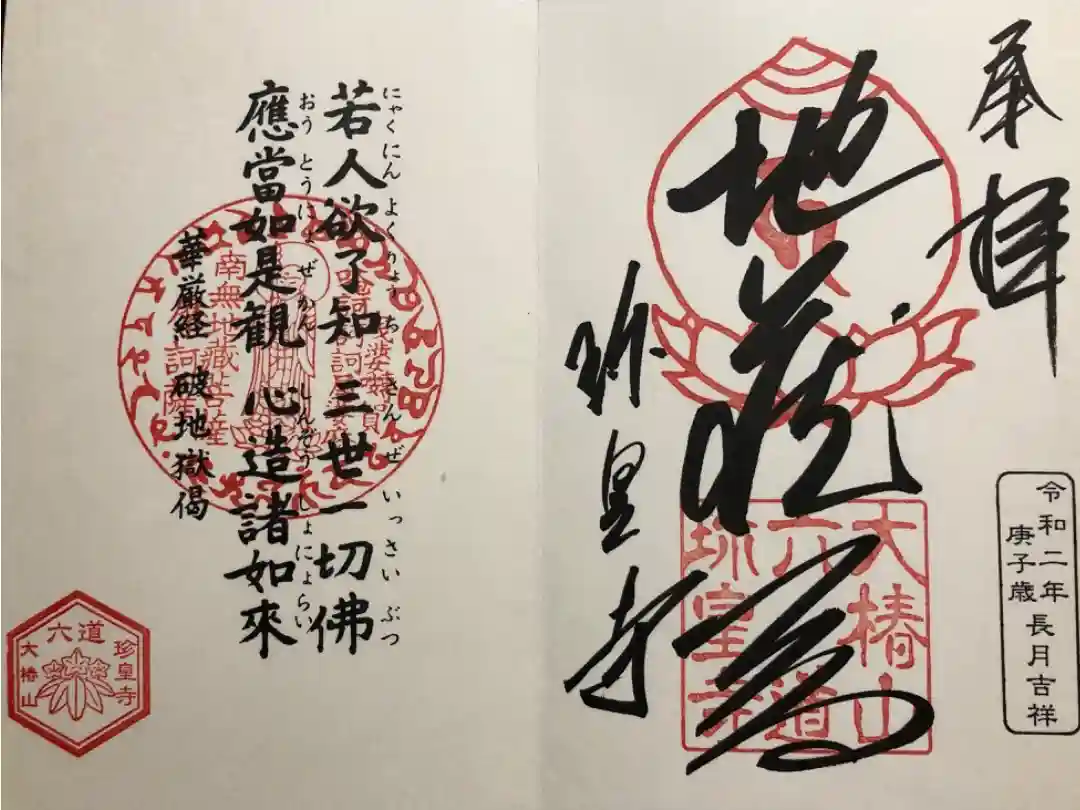 奉拝
地蔵尊
珍皇寺
大椿山
六道
珎皇寺
令和二年 長月吉祥
庚子歳
若人欲了知 三世一切佛
にゃくにん よくりょ ち さん ぜ いっさい ぶつ
應當如是観 心造諸如來
おう とうにょ ぜかん しんぞう しょにょらい
華厳経 破地獄偈
南無地蔵菩薩
六道
珍皇寺
大椿山